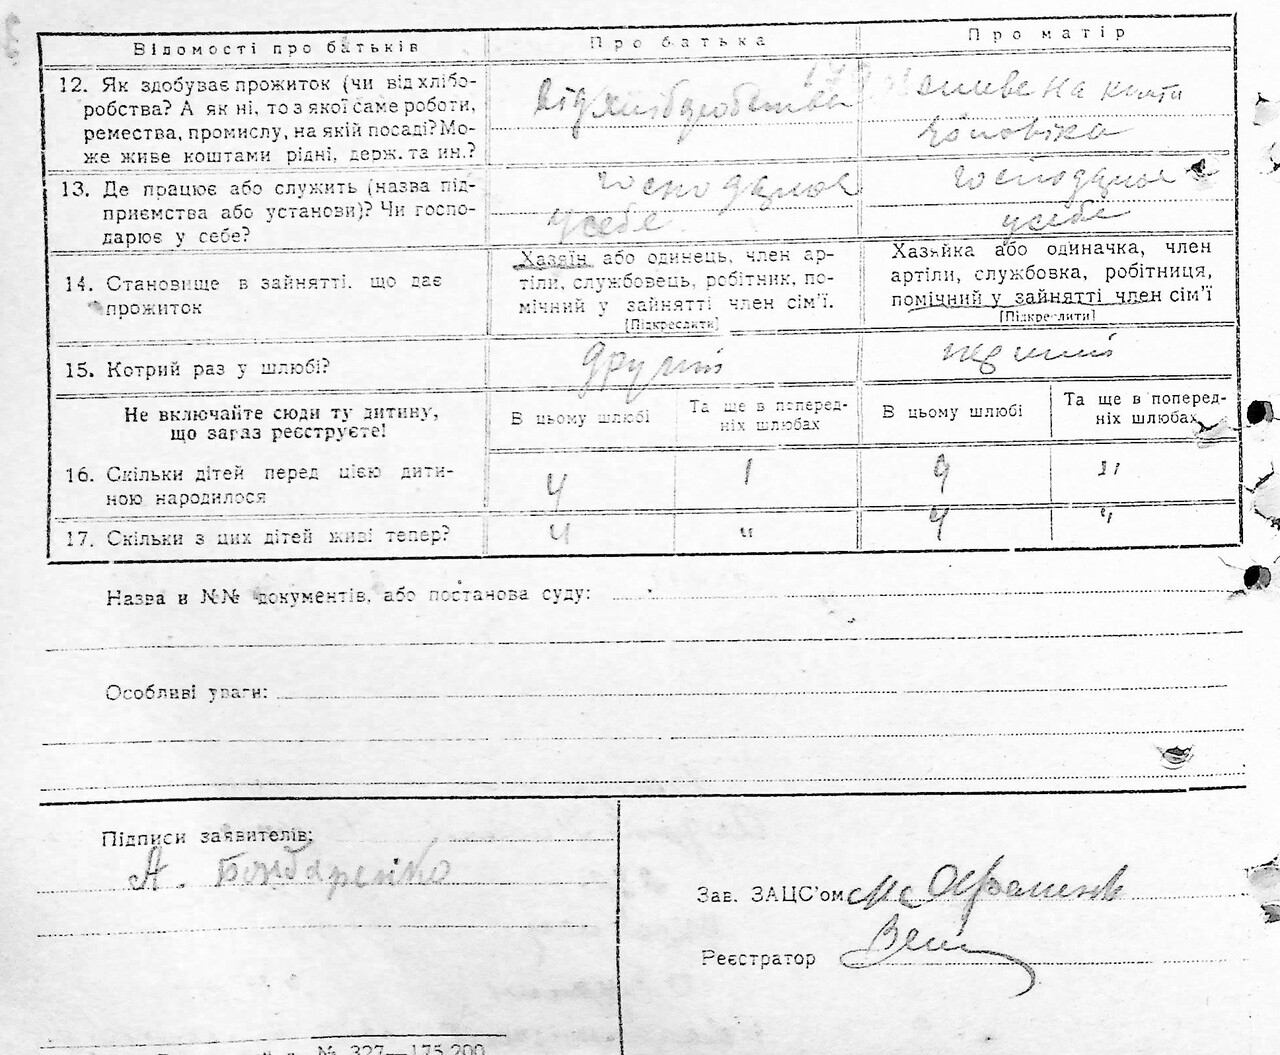 Відомості про батьків Про батька Про матір
12. Як здобуває прожиток (чи від хлібо-
робства? А як ні, то з якої саме роботи,
ремества, промислу, на якій посаді? Мо-
же живе коштами рідні, держ. та ин.?
від хліборобства
живе на кошти
чоловіка
13. Де працює або служить (назва під-
приємства або установи)? Чи госпо-
дарює у себе?
господарює
у себе
господарює
у себе
14. Становище в зайнятті, що дає
прожиток
Хазяїн або одинець, член ар-
тіли, службовець, робітник, по-
мічний у зайнятті член сім'ї.
[Підкреслити]
Хазяйка або одиначка, член
артіли, службовка, робітниця,
помічний у зайнятті член сім'ї
[Підкреслити]
15. Котрий раз у шлюбі? другий перший
Не включайте сюди ту дитину,
що зараз реєструєте!
В цьому шлюбі
Та ще в поперед-
ніх шлюбах
В цьому шлюбі
Та ще в поперед-
ніх шлюбах
16. Скільки дітей перед цією дити-
ною народилося
4 1 9 "
17. Скільки з цих дітей живі тепер? 4 " 4 "
Назва и №№ документів, або постанова суду:
Особливі уваги:
Підписи заявителів:
А. Бондаренко
Зав. ЗАЦС'ом
Реєстратор
№ 327—175.200